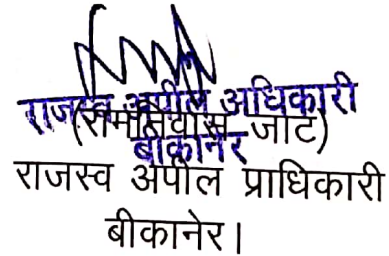 राजस्व अपील अधिकारी
बीकानेर
(रामनिवास जाट)
राजस्व अपील प्राधिकारी
बीकानेर।